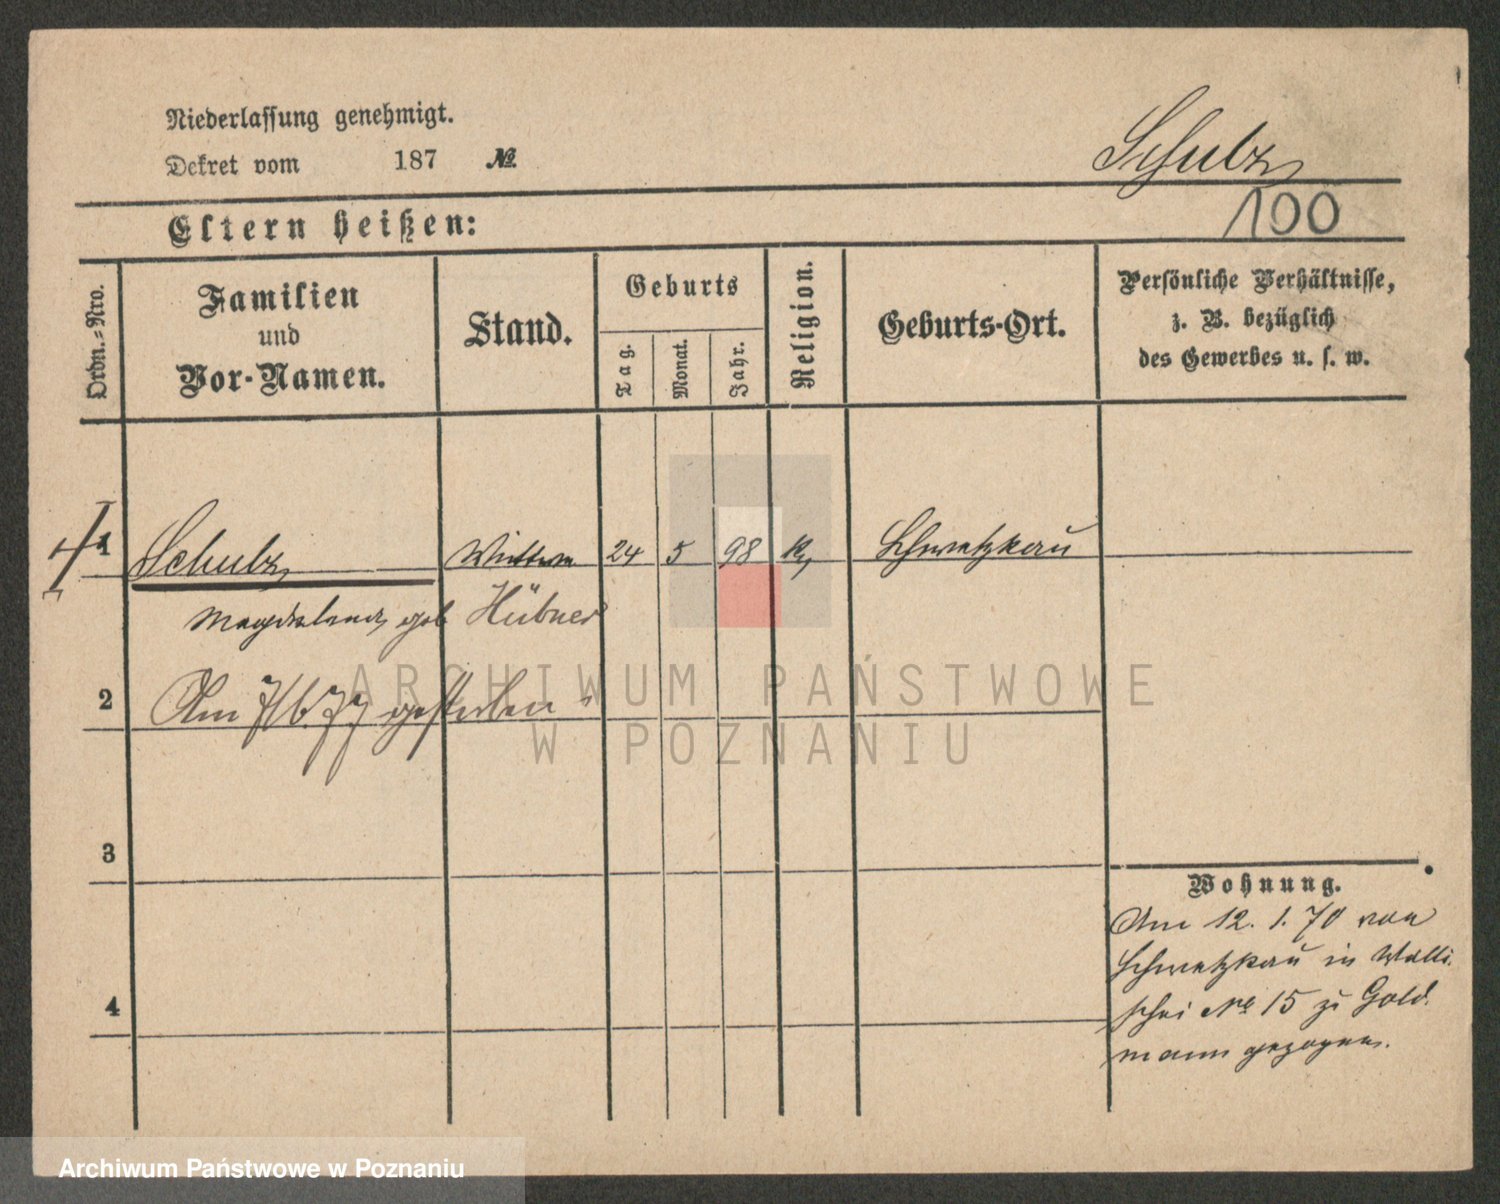 Niederlassung genehmigt.
Dekret vom 187 №
Schulz
100
Eltern heißen:
Ordn.-Nro.
Familien
und
Vor-Namen.
Stand.
Geburts
Tag.
Monat.
Jahr.
Religion.
Geburts-Ort.
Persönliche Verhältnisse,
z. B. bezüglich
des Gewerbes u. s. w.
1 Schulz Wittwe 24 5 98 K. Schwetzkau
Magdalena geb Hübner
2 Am 7/6 77 gestorben
3
4
Wohnung.
Am 12. 1. 70 von
Schwetzkau in Walli
schei № 15 zu Gold
mann gezogen.
ARCHIWUM PAŃSTWOWE
W POZNANIU
Archiwum Państwowe w Poznaniu